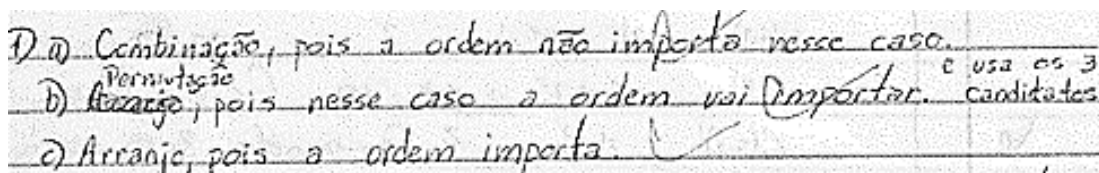 1) a) Combinação, pois a ordem não importa nesse caso.
Permutação e usa os 3
b) Arranjo, pois nesse caso a ordem vai importar. canditates
c) Arranjo, pois a ordem importa.